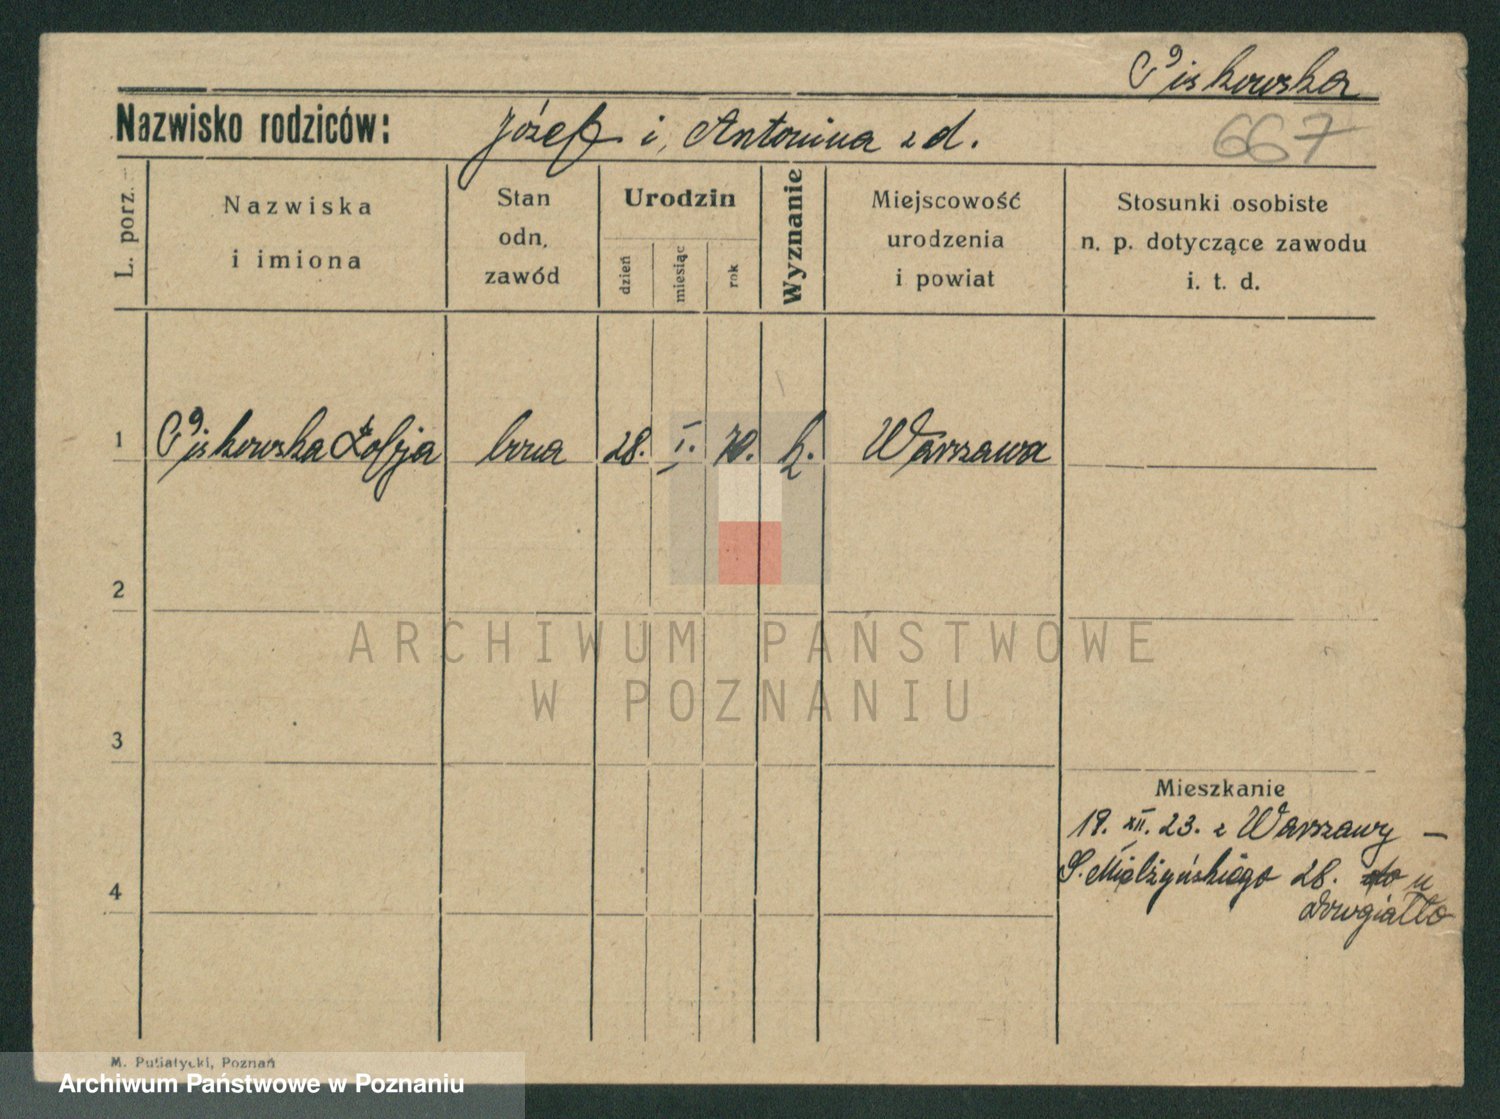 Piskowska
Nazwisko rodziców: Józef i Antonina z d.
667
L. porz.
Nazwiska
i imiona
Stan
odn,
zawód
Urodzin
dzień
miesiąc
rok
Wyznanie
Miejscowość
urodzenia
i powiat
Stosunki osobiste
n. p. dotyczące zawodu
i. t. d.
1 Piskowska Zofja 28. I. 70. k. Warszawa
2
ARCHIWUM PAŃSTWOWE
W POZNANIU
3
Mieszkanie
19. XII. 23. z Warszawy –
S. Mielżyńskiego 28. u
4
M. Putiatycki, Poznań
Archiwum Państwowe w Poznaniu